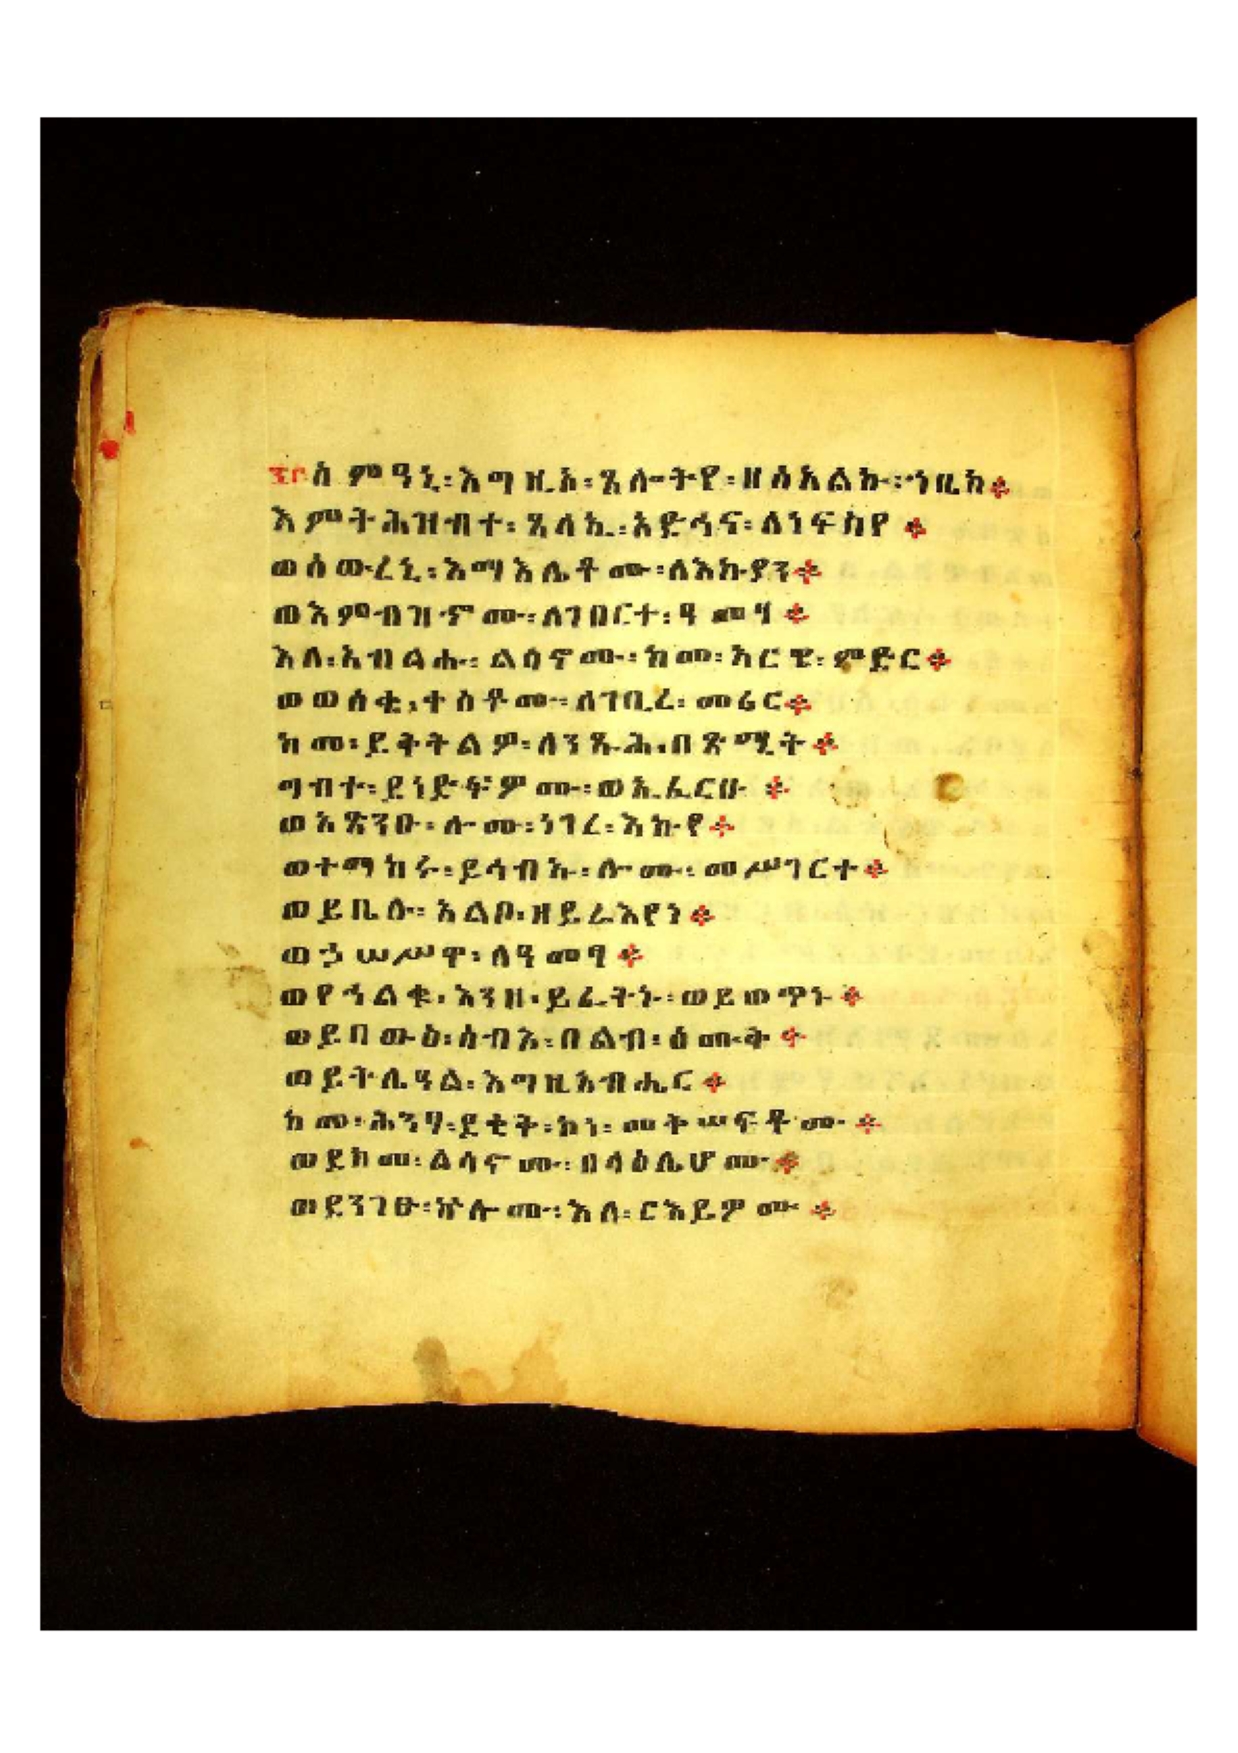 ፷፫ስምዓኒ፡እግዚአ፡ጸሎትየ፡ዘሰአልኩ፡ኀቤከ።
እምትሕዝብተ፡ጸላኢ፡አድኅና፡ለነፍስየ።
ወሰውረኒ፡እማእሌቶሙ፡ለእኩያን።
ወእምብዝኆሙ፡ለገበርተ፡ዓመፃ።
እለ፡አብልሑ፡ልሳኖሙ፡ከመ፡አርዌ፡ምድር።
ወወሰቁ፡ቀስቶሙ፡ለገቢረ፡መሪር።
ከመ፡ይቅትልዎ፡ለንጹሕ፡በጽሚት።
ግብተ፡ይነድፍዎሙ፡ወኢፈርሁ።
ወአጽንዑ፡ሎሙ፡ነገረ፡እኩየ።
ወተማከሩ፡ይኅብኡ፡ሎሙ፡መሥገርተ።
ወይቤሉ፡አልቦ፡ዘይሬእየነ።
ወኃሠሥዋ፡ለዓመፃ።
ወየኀልቁ፡እንዘ፡ይፈትኑ፡ወይወጥኑ።
ወይበውዕ፡ሰብእ፡በልብ፡ዕሙቅ።
ወይትሌዓል፡እግዚአብሔር።
ከመ፡ሕንፃ፡ደቂቅ፡ኮነ፡መቅሠፍቶሙ።
ወደክመ፡ልሳኖሙ፡በላዕሌሆሙ።
ወደንገፁ፡ኵሎሙ፡እለ፡ርእይዎሙ።